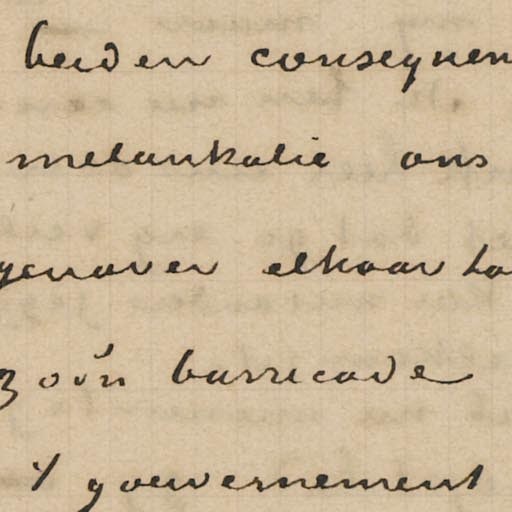 beiden consequen
melankolie ons
genover elkaar to
zoo'n barricade
't gouvernement